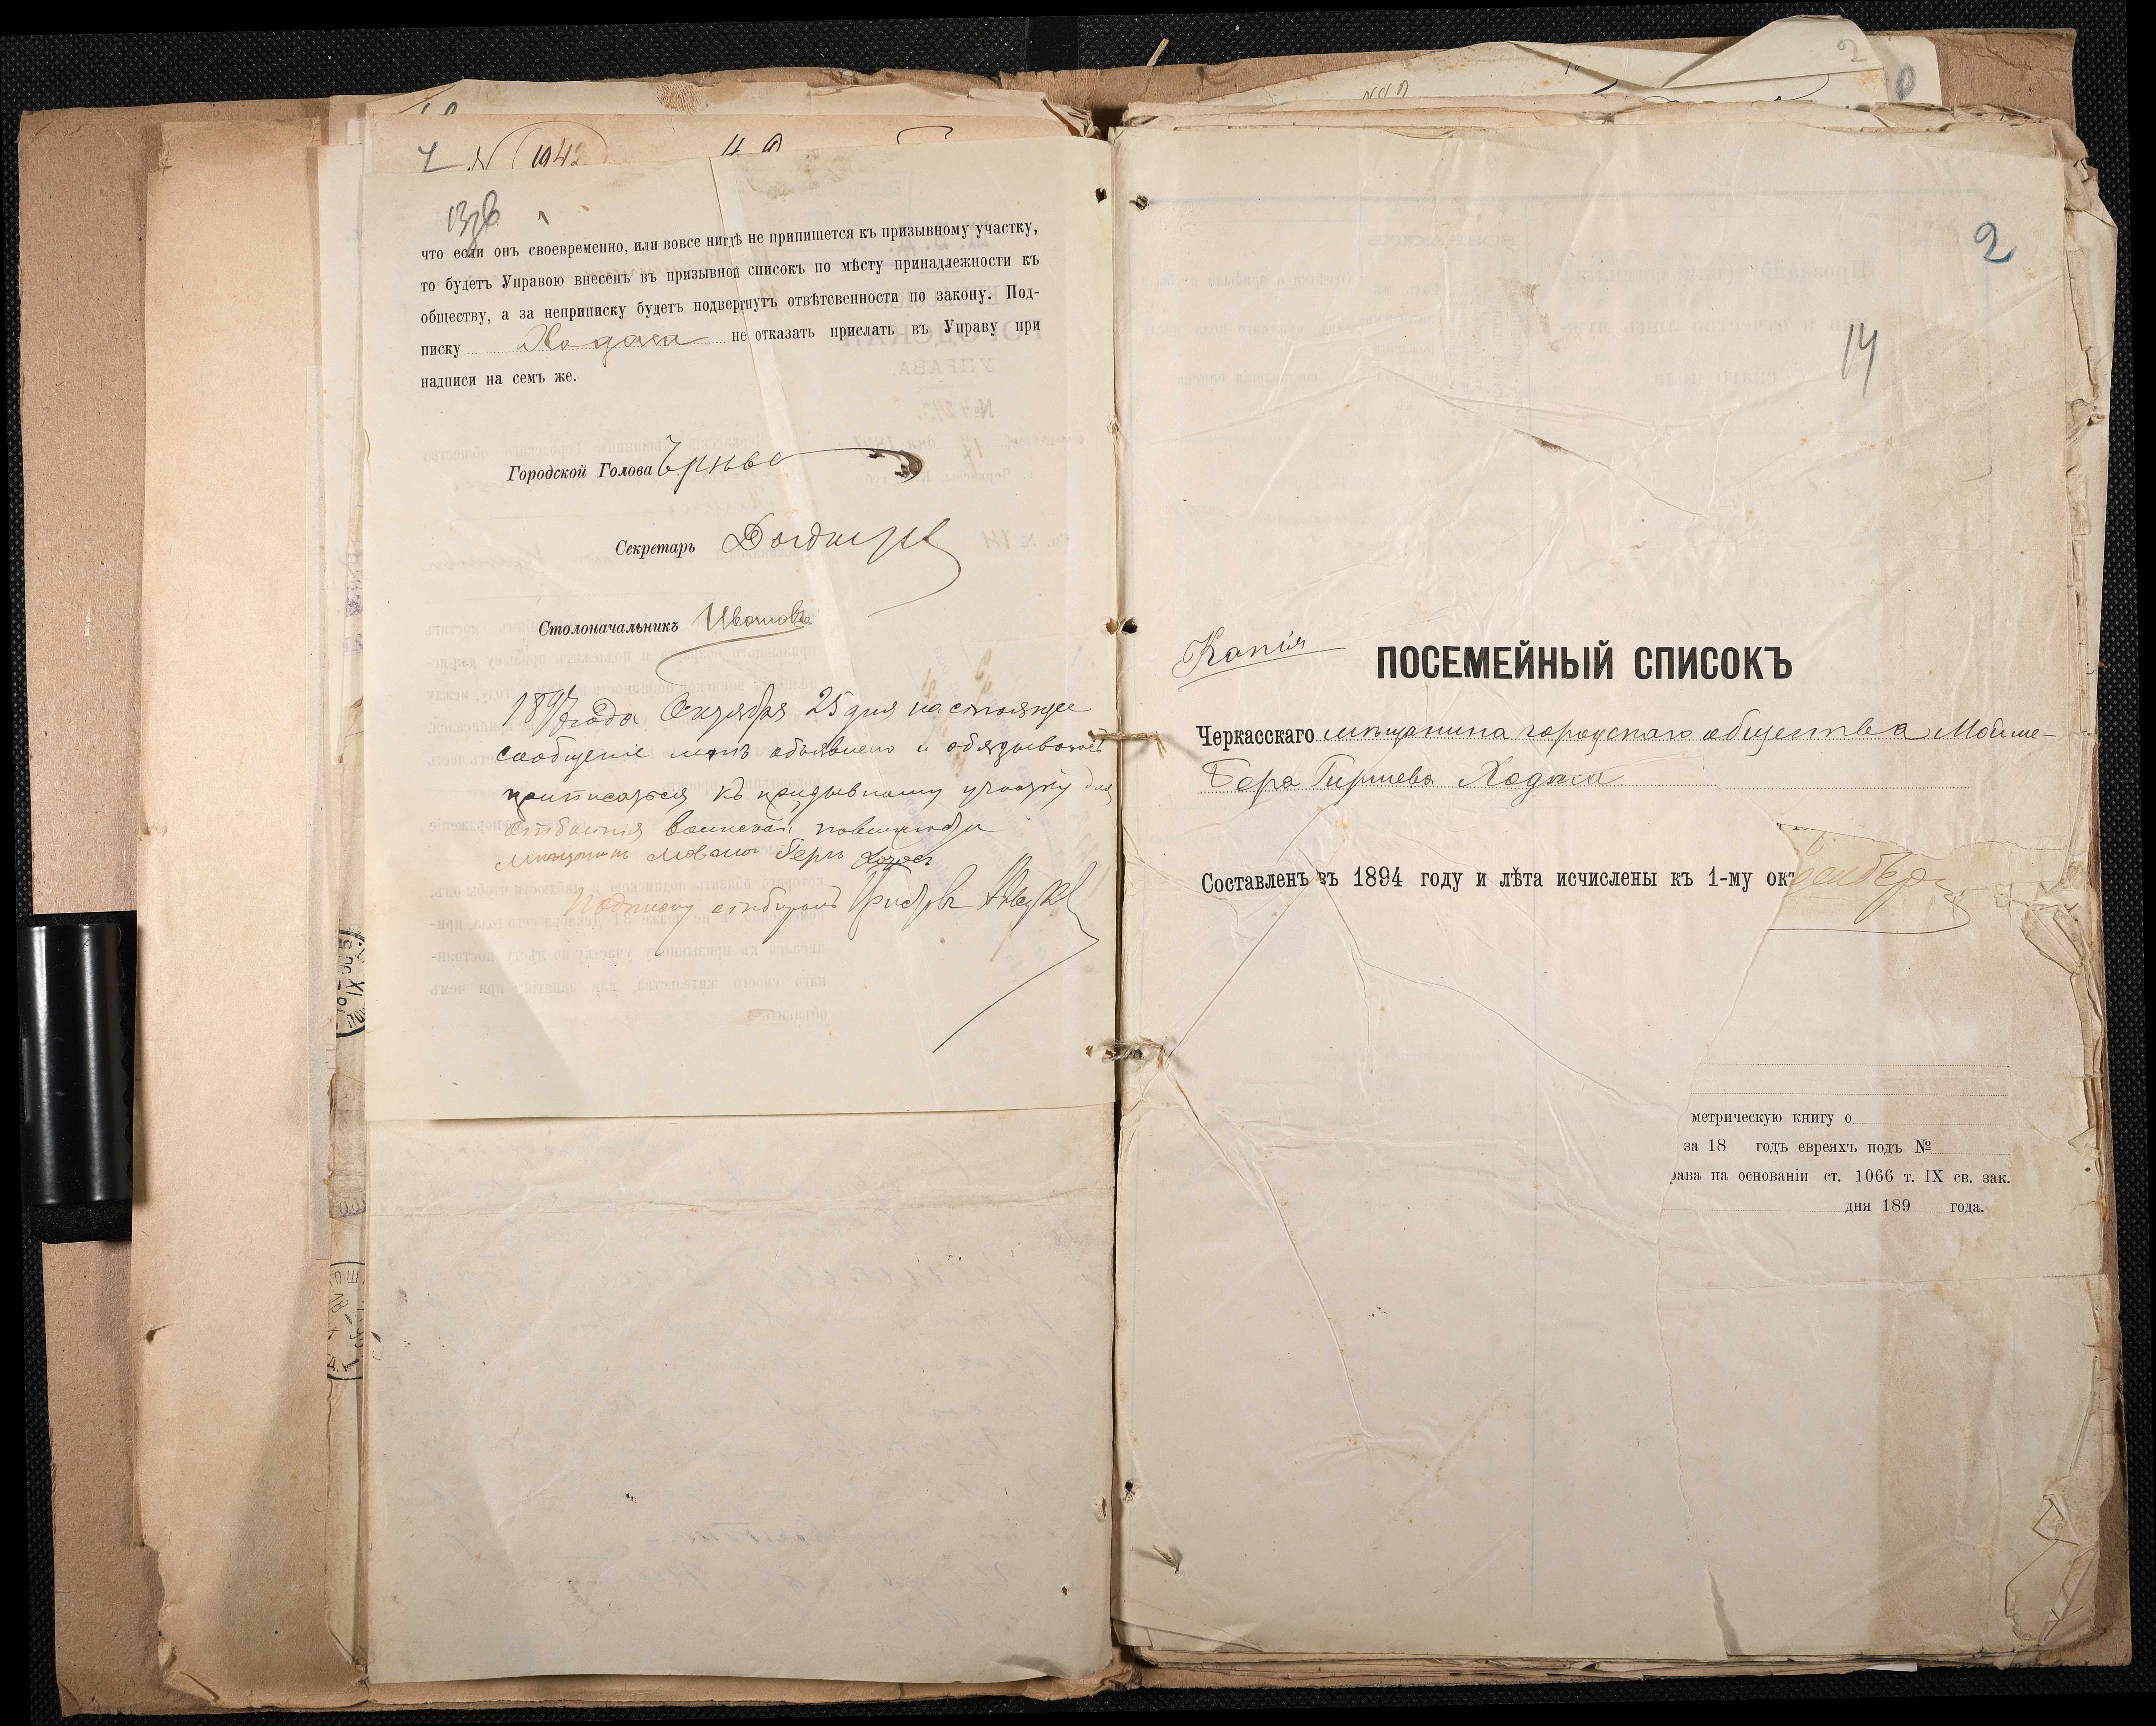 № 1942
13зв
что если онъ своевременно, или вовсе нигдѣ не припишется къ призывному участку,
то будетъ Управою внесенъ въ призывной списокъ по мѣсту принадлежности къ
обществу, а за неприписку будетъ подвергнутъ отвѣтсвенности по закону. Под-
писку Ходаса не отказать прислать въ Управу при
надписи на семъ же.
Городской Голова
Секретарь
Столоначальникъ Ивановъ
1897 года Октября 25 дня настоящее
сообщеніе мнѣ объявлено и обязываюсь
приписаться къ призывному участку для
отбытія воинской повинности
мѣщанинъ Мовша Беръ Ходосъ
Подписку отобралъ
2
2
14
Копія
ПОСЕМЕЙНЫЙ СПИСОКЪ
Черкасскаго мѣщанина городскаго общества Мовше-
Бера Гиршева Ходаса
Составленъ въ 1894 году и лѣта исчислены къ 1-му окт
метрическую книгу о
за 18 годъ евреяхъ подъ №
рава на основаніи ст. 1066 т. IX св. зак.
дня 189 года.